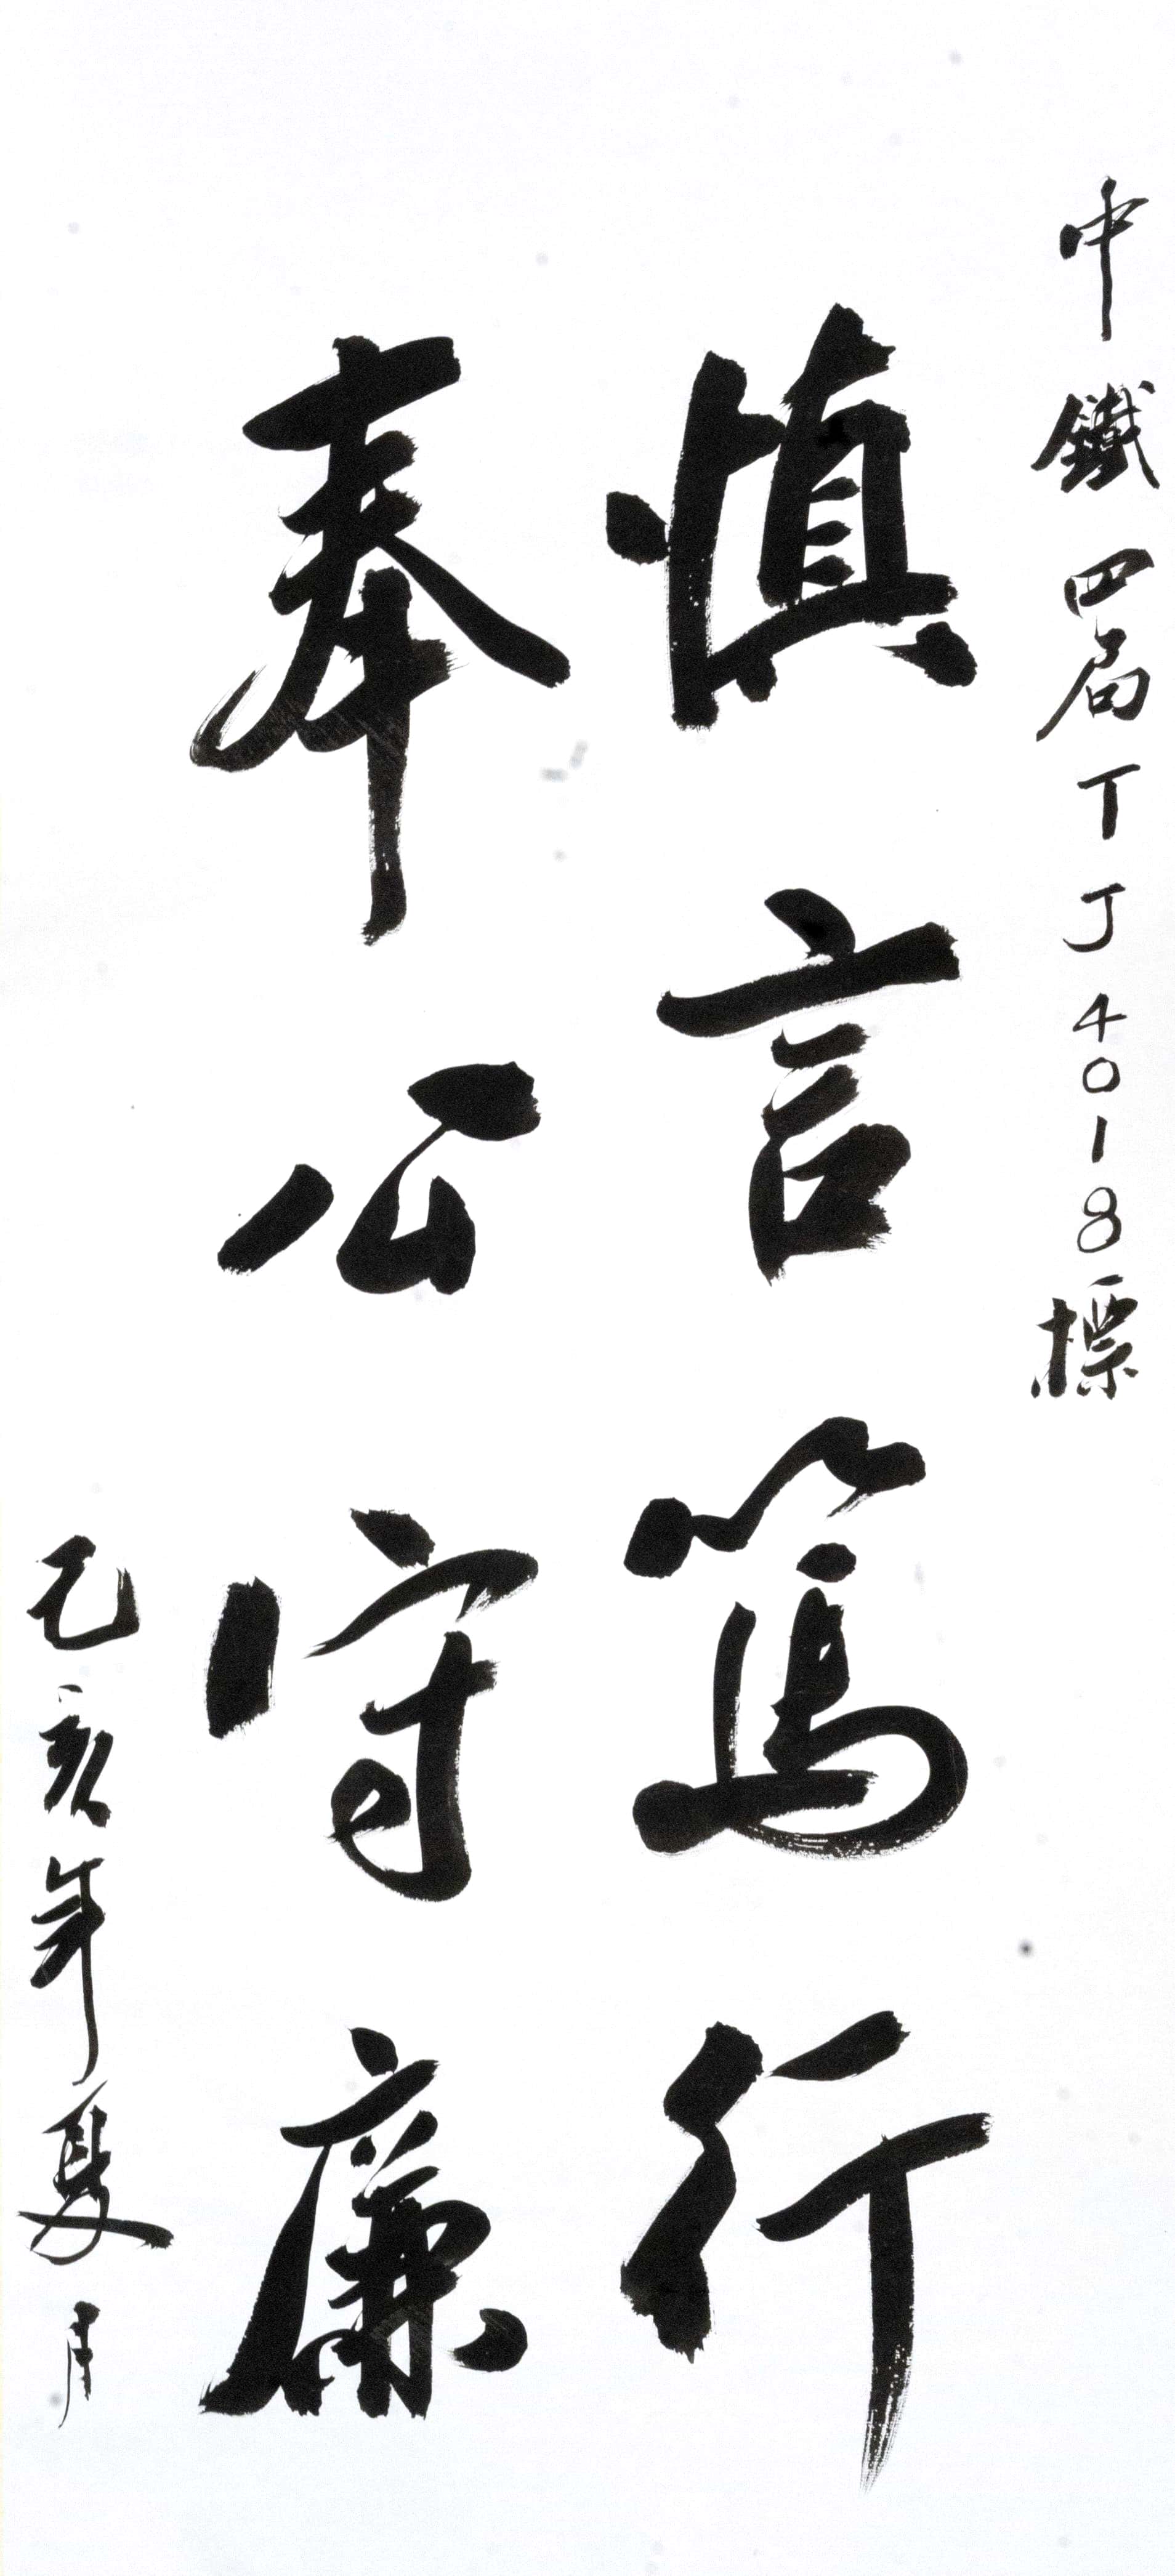 中鐵四局TJ4018標
慎言篤行
奉公守廉
己亥年夏月